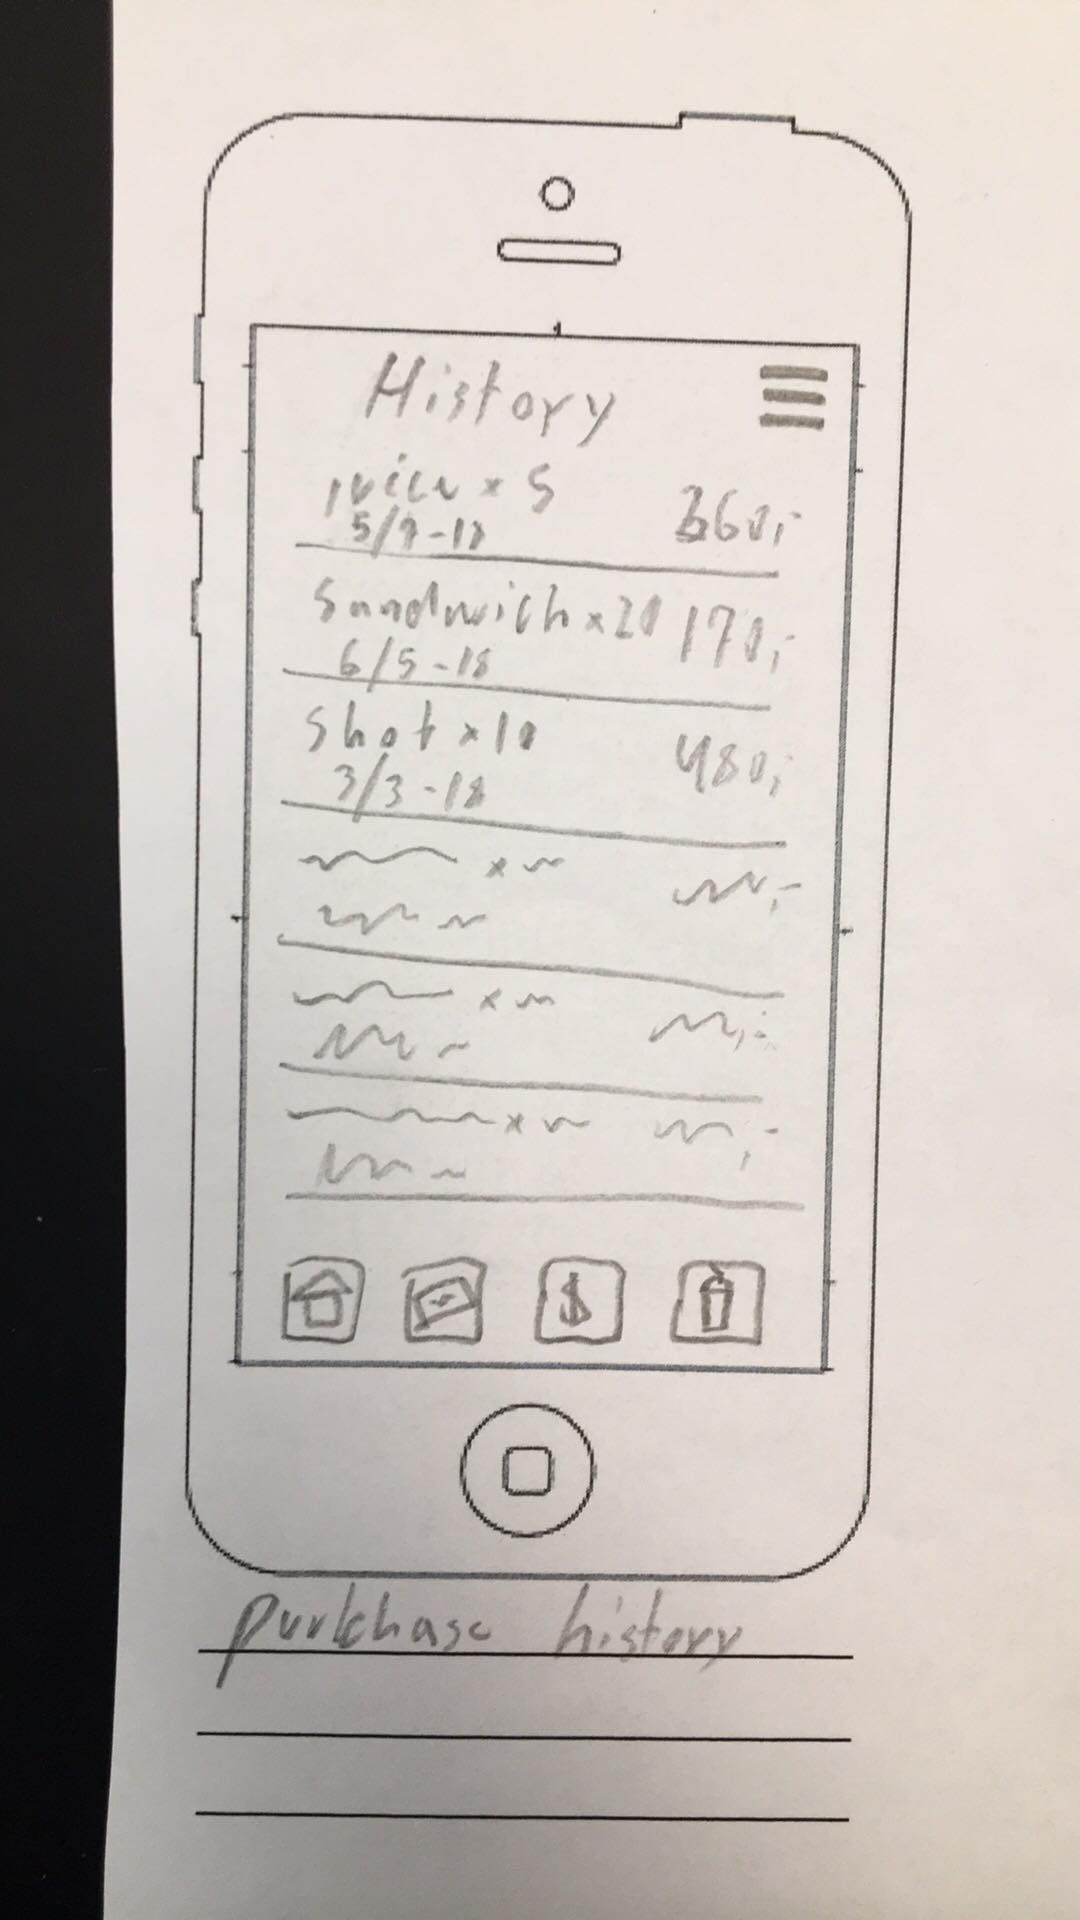 History
juice x 5 360,-
5/9-18
Sandwich x 20 170,-
6/5-18
Shot x 10 480,-
3/3-18
$
purkchase history